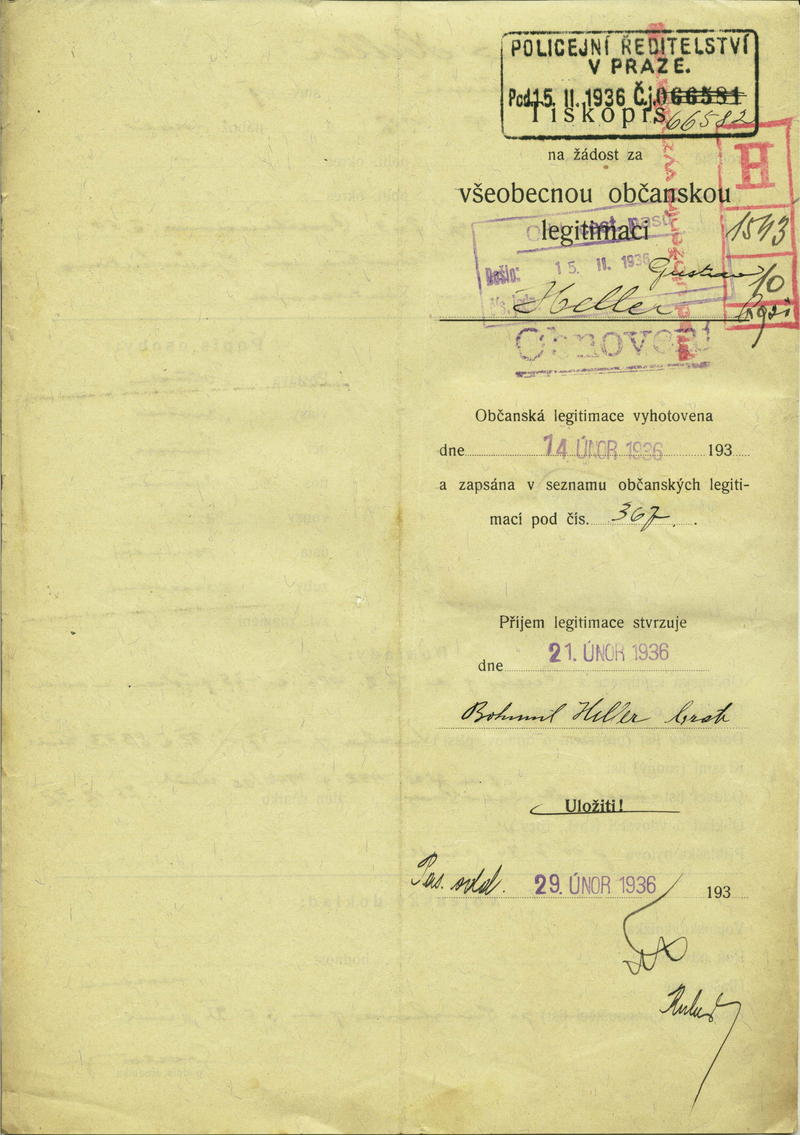 POLICEJNÍ ŘEDITELSTVÍ
V PRAZE.
Pod. 15. II. 1936 Č.j. 066581
Tiskopis 66582
na žádost za
všeobecnou občanskou
legitimaci
H
1593
10
Došlo: 15. II. 1936
Gustav
Heller
Obnovení
Občanská legitimace vyhotovena
dne 14 ÚNOR 1936 193
a zapsána v seznamu občanských legiti-
mací pod čís. 367 .
Příjem legitimace stvrzuje
dne 21. ÚNOR 1936
Bohumil Heller bratr
Uložiti!
Pas. odd. 29. ÚNOR 1936 193